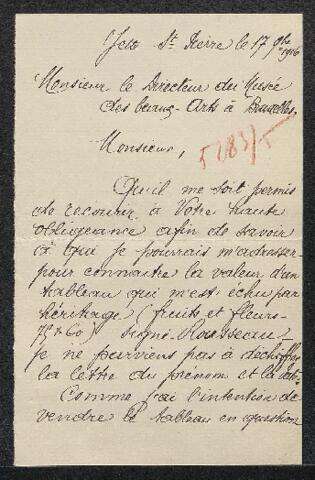 Jette St Pierre le 17 9bre 1916
Monsieur le Directeur du Musée
des beaux-Arts à Bruxelles,
Monsieur,
5283/5
Qu'il me soit permis
de recourir à Votre haute
obligeance afin de savoir
à qui je pourrais m'adresser
pour connaitre la valeur d'un
tableau qui m'est échu par
héritage (fruits et fleurs-
75 x 60) signé Rousseau-
je ne parviens pas à déchiffrer
la lettre du prénom et la date.
Comme j'ai l'intention de
vendre le tableau en question